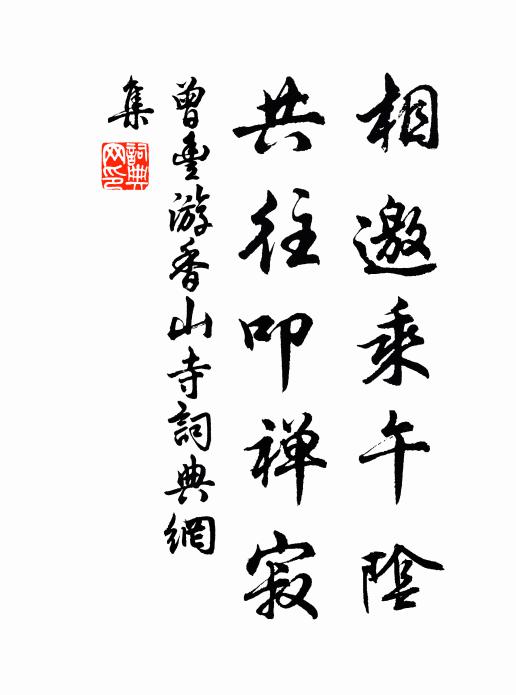 相邀乘午陰
共往叩禅寂
曾豊游香山寺詞典網
集
詞典網印